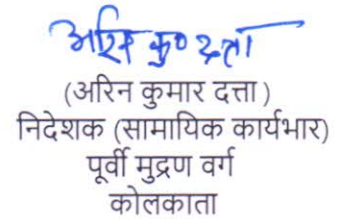 अरिन कु० दत्ता
(अरिन कुमार दत्ता)
निदेशक (सामायिक कार्यभार)
पूर्वी मुद्रण वर्ग
कोलकाता